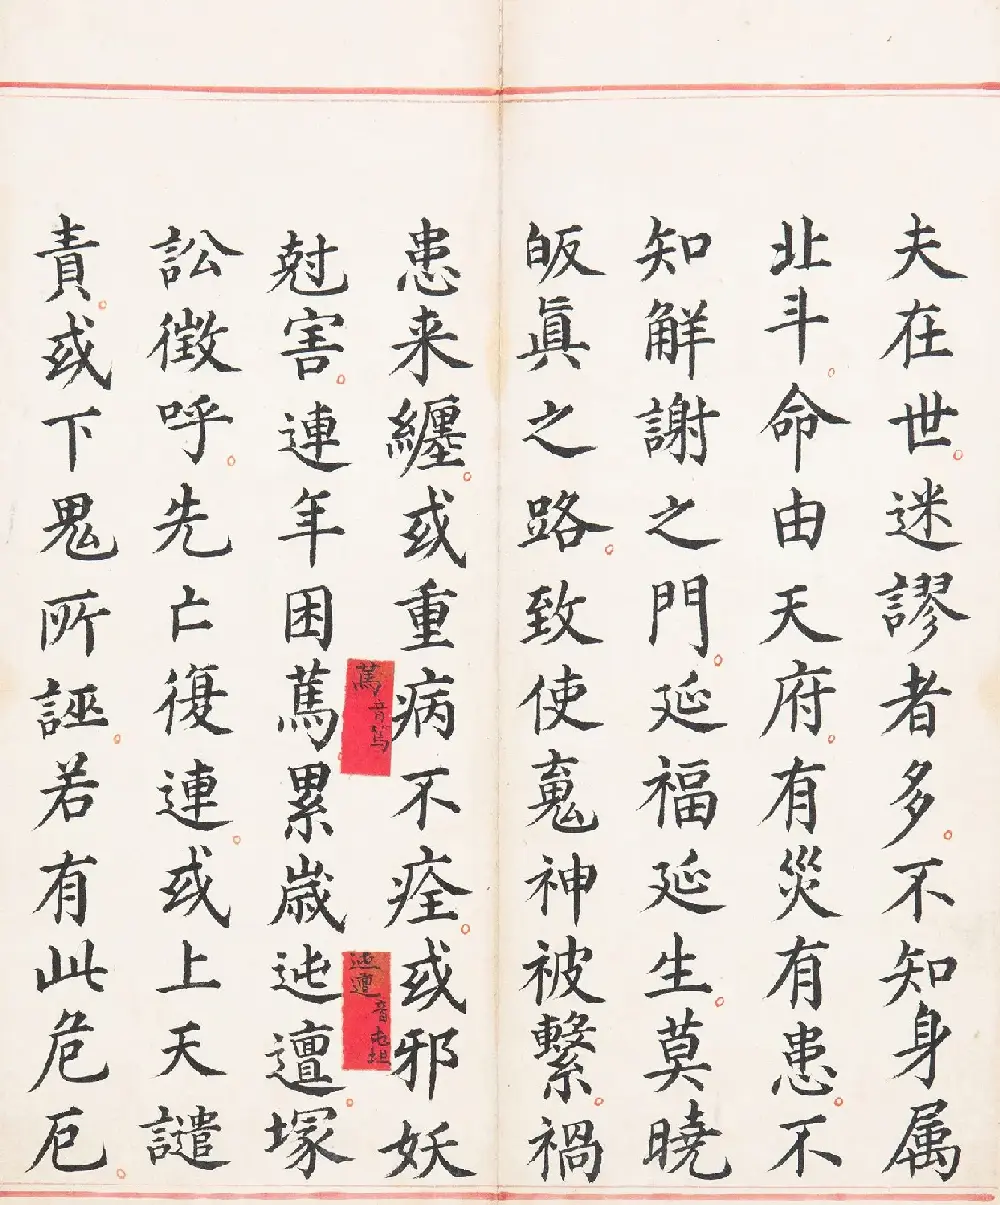 夫在世。迷謬者多。不知身属
北斗。命由天府。有災有患。不
知解謝之門。延福延生。莫曉
皈眞之路。致使䰠神被繫。禍
患来纏。或重病不痊。或邪妖
尅害。連年困蔦。累歲迍邅。塚
訟徵呼。先亡復連。或上天譴
責。或下鬼所誣。若有此危厄。
蔦音鸟
迍邅音屯邅